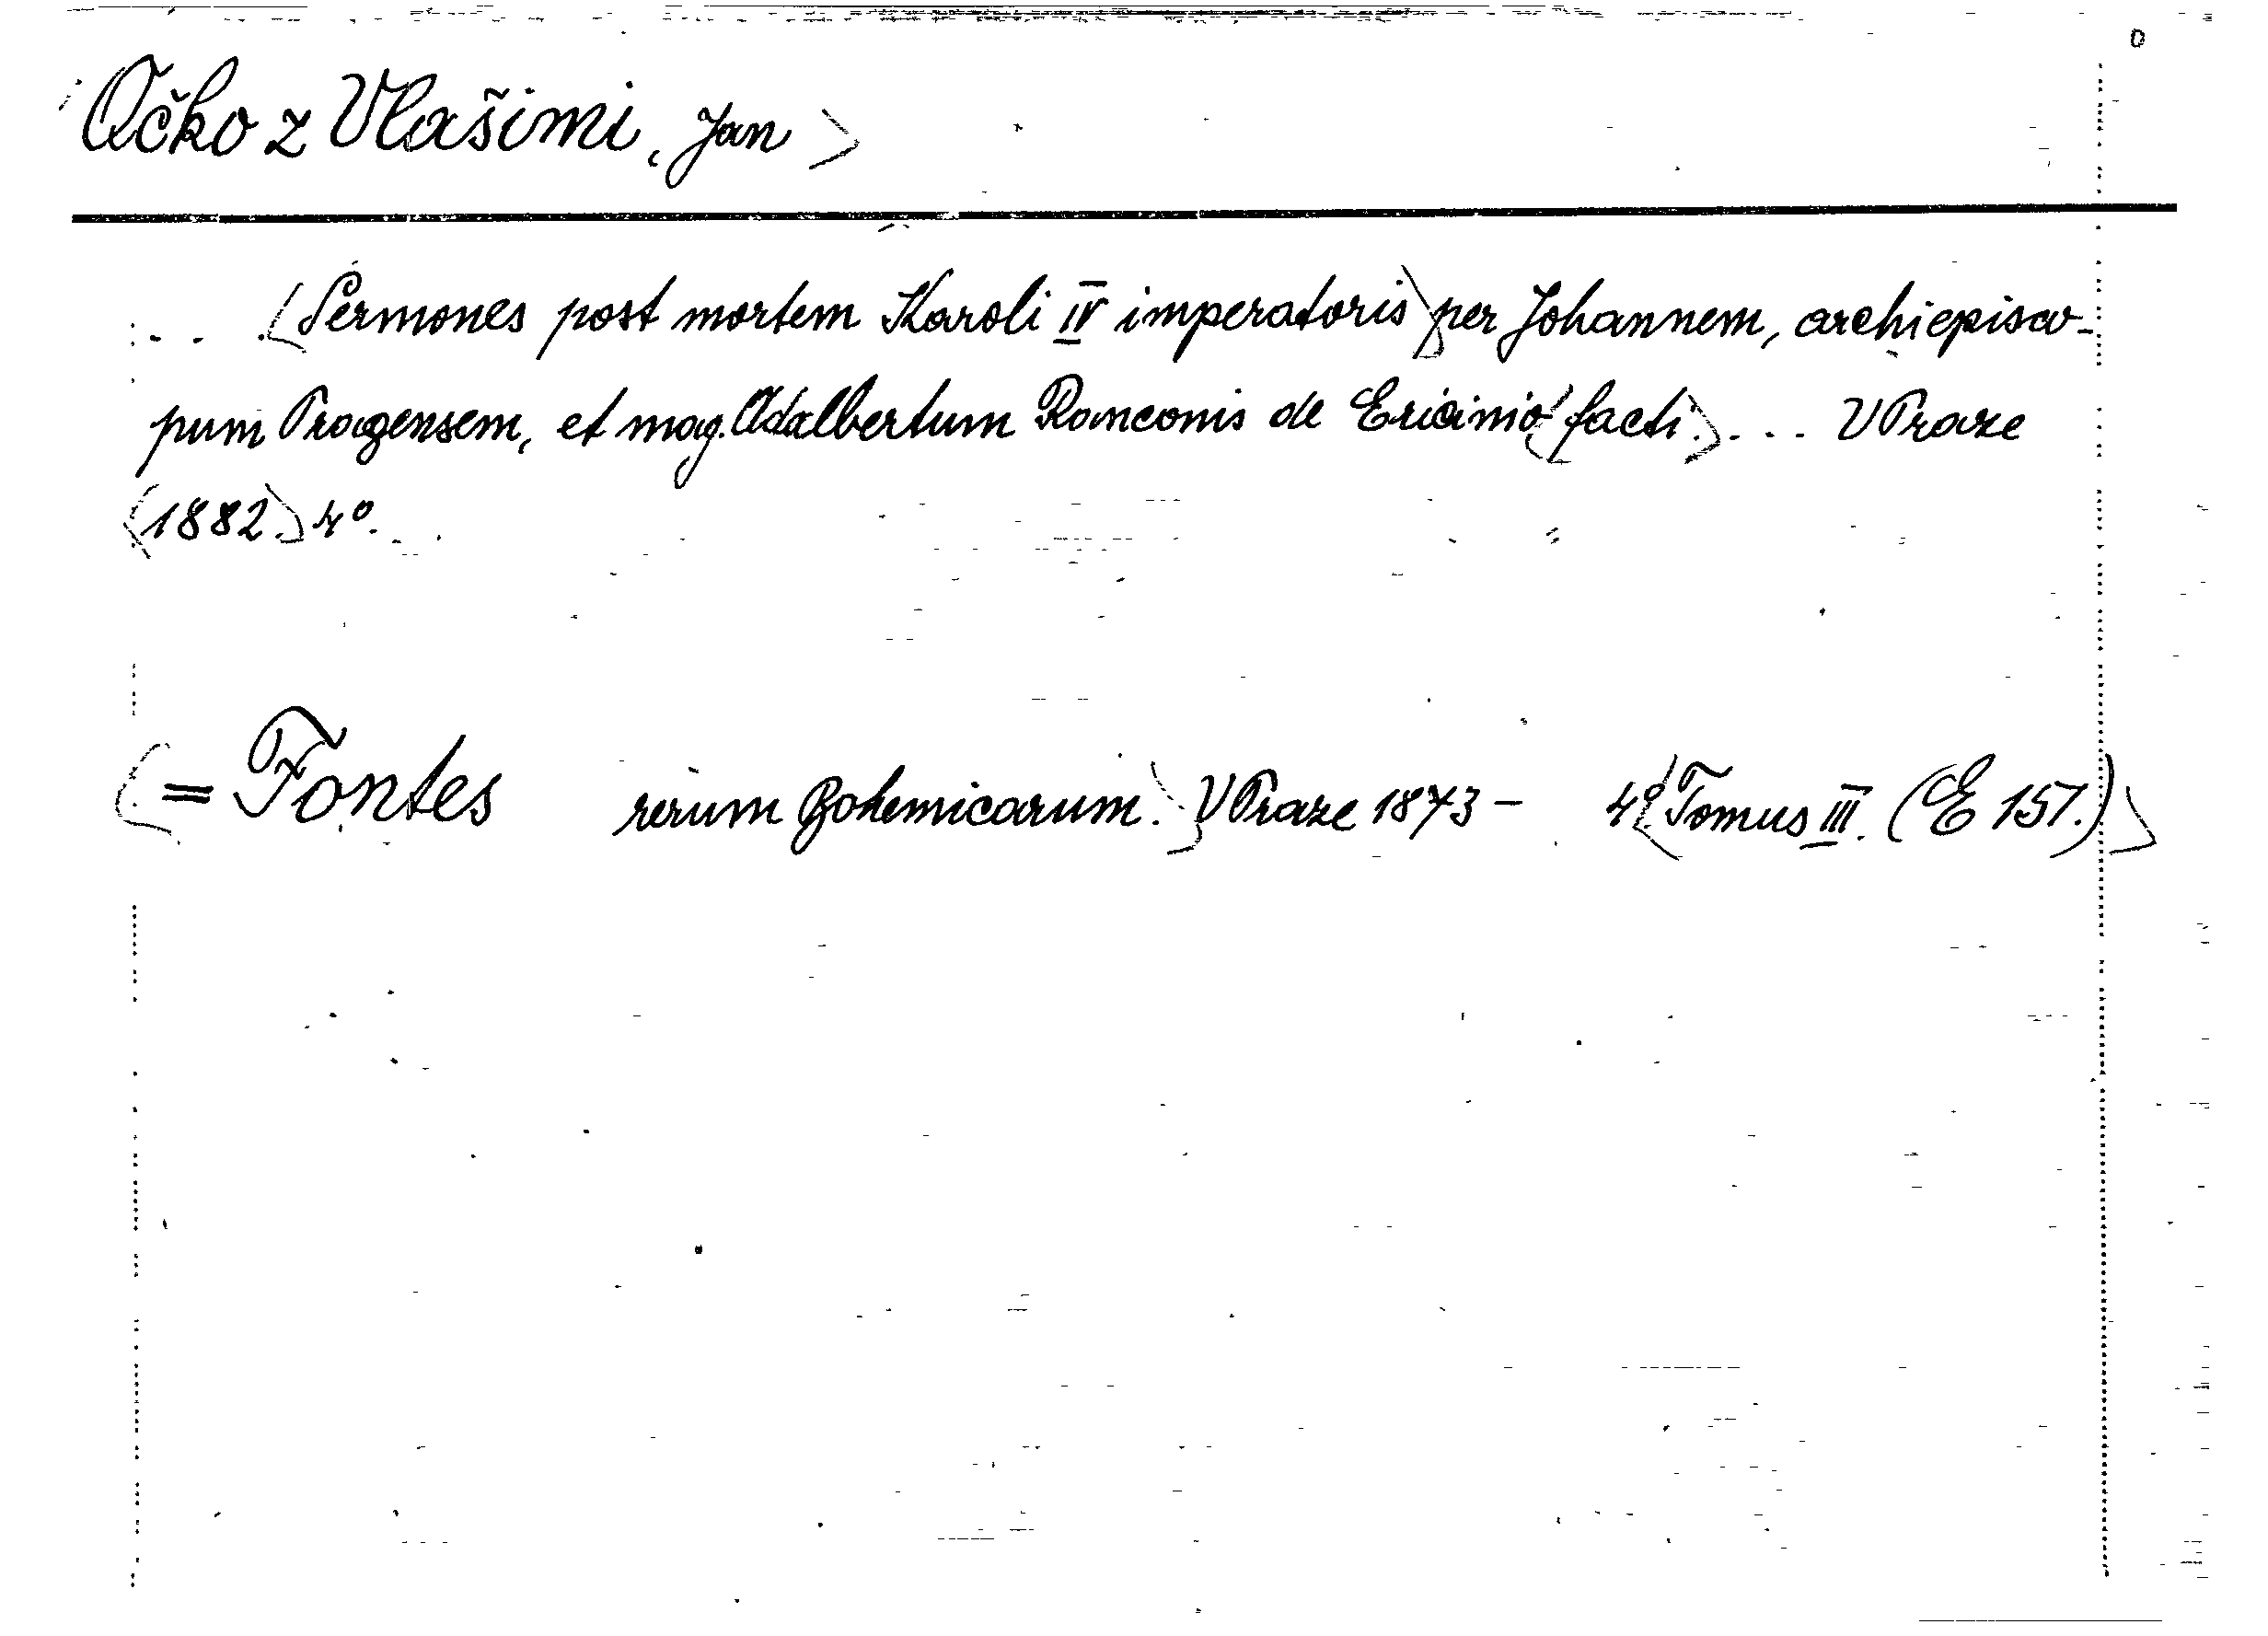 Očko z Vlašimi, Jan >
... (Sermones post mortem Karoli IV imperatoris) per Johannem, archiepisco-
pum Pragensem, et mag. Adalbertum Ranconis de Ericinio (facti.) ... V Praze
(1882.) 4º.
(= Fontes rerum Bohemicarum.) V Praze 1873 - 4º (Tomus III. (E 151.))